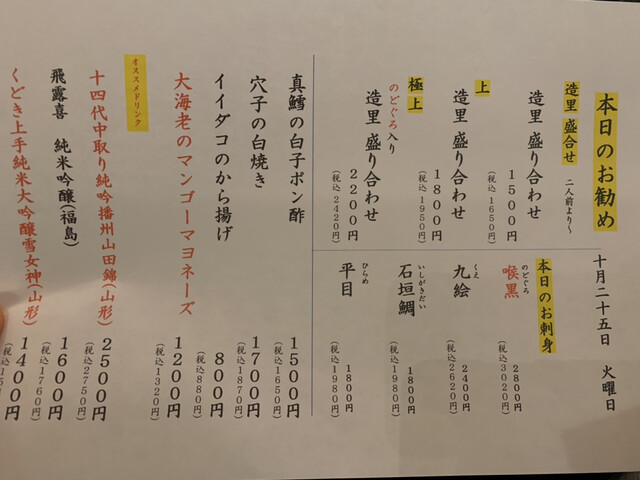 本日のお勧め
十月二十五日 火曜日
造里 盛合せ 二人前より〜
造里 盛り合わせ
1500円
(税込1650円)
上
造里 盛り合わせ
1800円
(税込1950円)
極上
のどぐろ入り
造里 盛り合わせ
2200円
(税込2420円)
本日のお刺身
喉黒
のどぐろ
2800円
(税込3020円)
九絵
くえ
2400円
(税込2620円)
石垣鯛
いしがきだい
1800円
(税込1980円)
平目
ひらめ
1800円
(税込1980円)
真鱈の白子ポン酢
1500円
(税込1650円)
穴子の白焼き
1700円
(税込1870円)
イイダコのから揚げ
800円
(税込880円)
大海老のマンゴーマヨネーズ
1200円
(税込1320円)
オススメドリンク
十四代中取り純吟播州山田錦(山形)
2500円
(税込2750円)
飛露喜 純米吟醸(福島)
1600円
(税込1760円)
くどき上手純米大吟醸雪女神(山形)
1400円